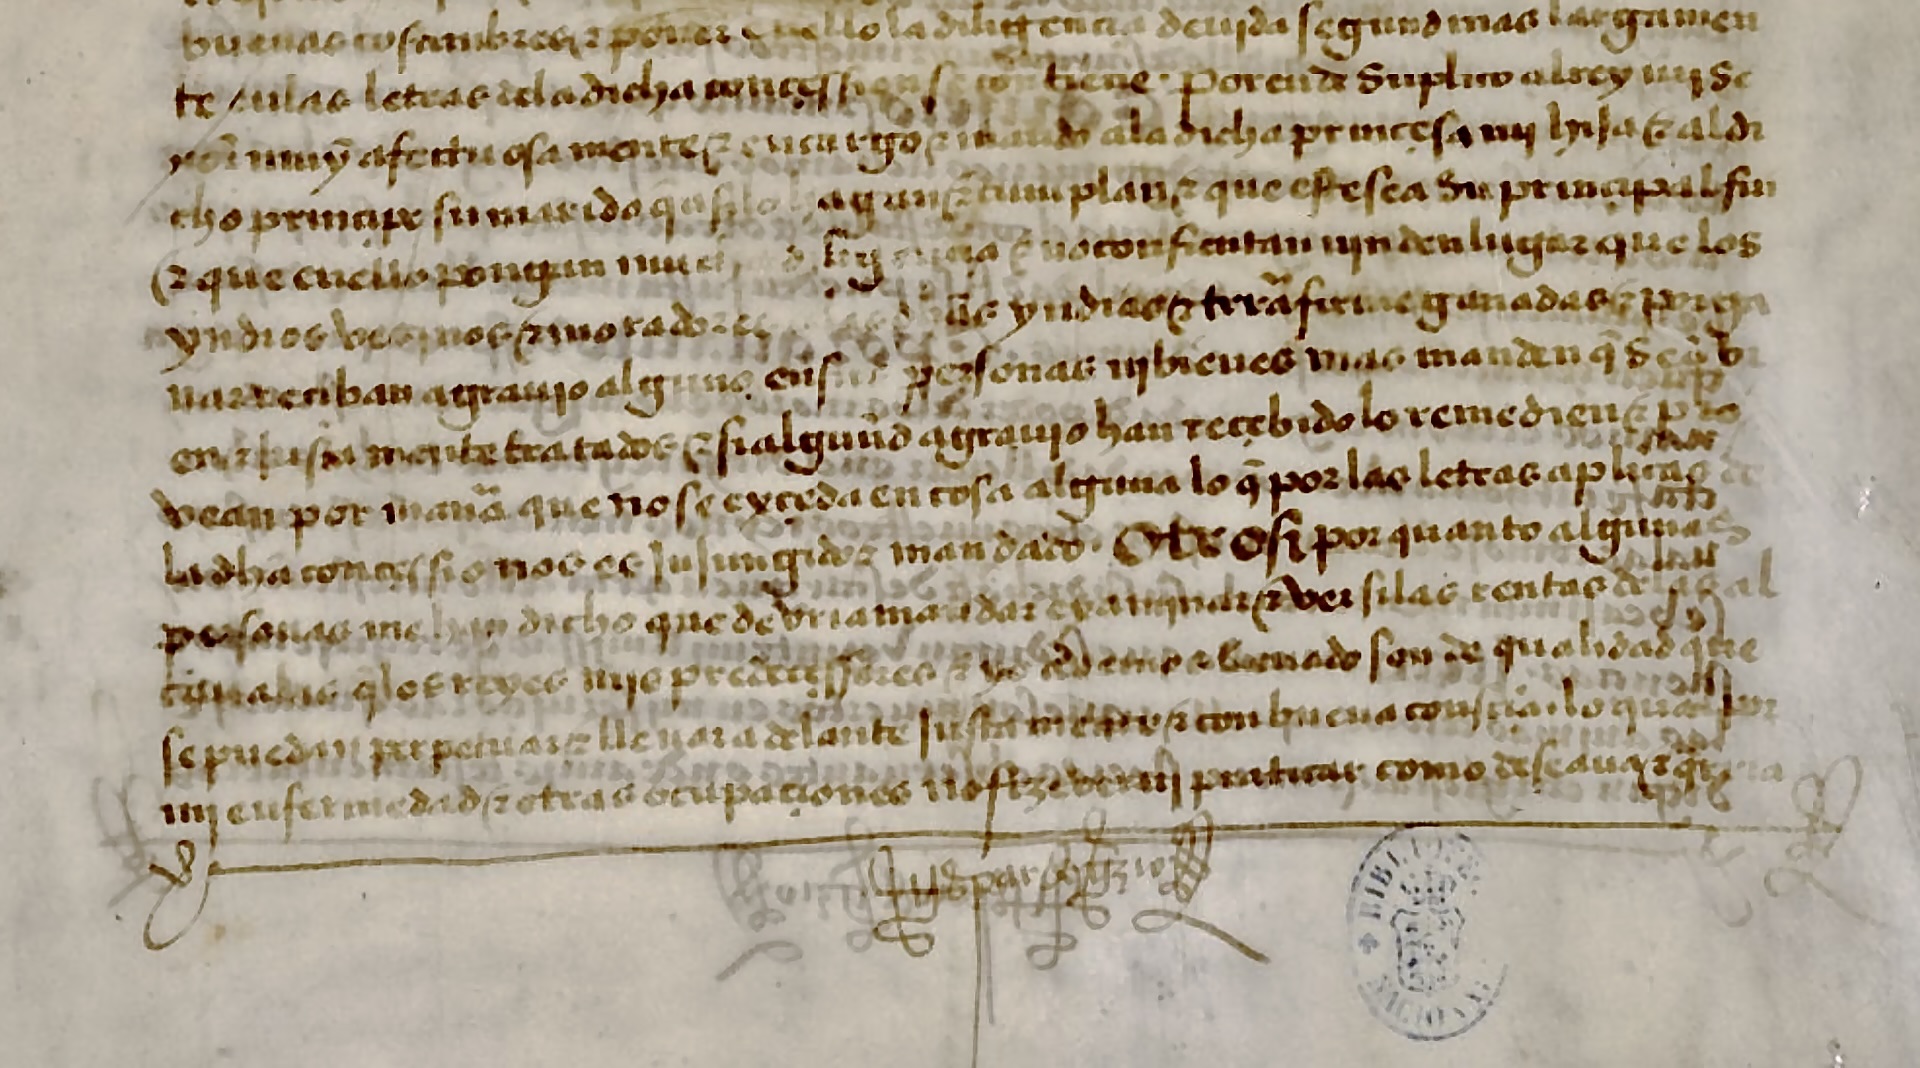 buenas costumbres & poner en ello la diligencia deuida segund mas largamen
te en las letras dela dicha concession se contiene. Por ende Suplico al rey mi Se
ñor muy afectuosamente & encargo & mando ala dicha princesa mi hija & al di
cho principe su marido q̃ asi lo hagan & cumplan & que este sea Su principal fin
& que enello pongan mucha diligencia & no consientan nin den lugar que los
yndios vesinos & moradores delas dhãs yndias & trrã firme ganadas & por ga
nar reciban agrauio alguno en sus personas ni bienes mas manden q̃ Sean bi
en & justamente tratados & si algund agrauio han recebido lo remedien & pro
vean por manã que no se exceda en cosa alguna lo q̃ por las letras aplicas de
la dhã concession nos es Injungido & mandado. Otrosi por quanto algunas
personas me han dicho que deuria mandar examinar & ver si las rentas delas al
caualas q̃ los reyes mis predecessores & yo avemos leuado son de qualidad que
se puedan perpetuar & lleuar adelante Justamente & con buena conscia. lo qual por
mi enfermedad & otras ocupaciones no fize ver ni praticar como deseaua & q̃rria
BIBLIOTECA NACIONAL